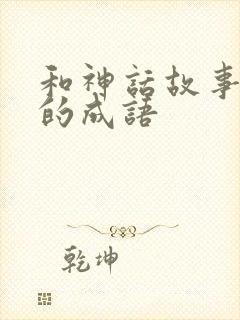 和神話故事
的成語
乾坤